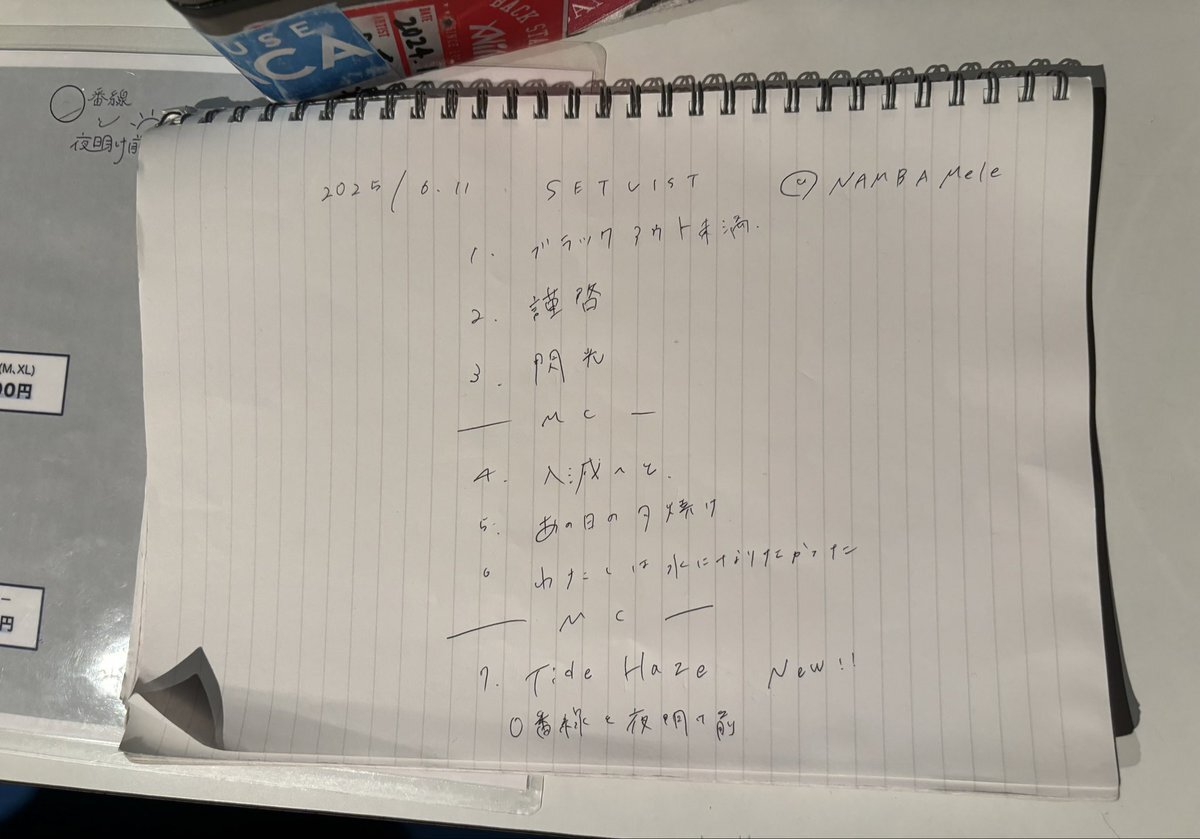 SEA
CA
BACK STA
DATE
2024.
ARTIST
SINCE
番線
夜明け前
2025/6.11 SETLIST @ NAMBA Mele
1. ブラックアウト未満.
2. 謹啓
3. 閃光
— MC —
4. 入滅へと.
5. あの日の夕焼け
6 わたしは水になりたかった
— MC —
7. Tide Haze New!!
0番線と夜明け前
(M、XL)
00円
円